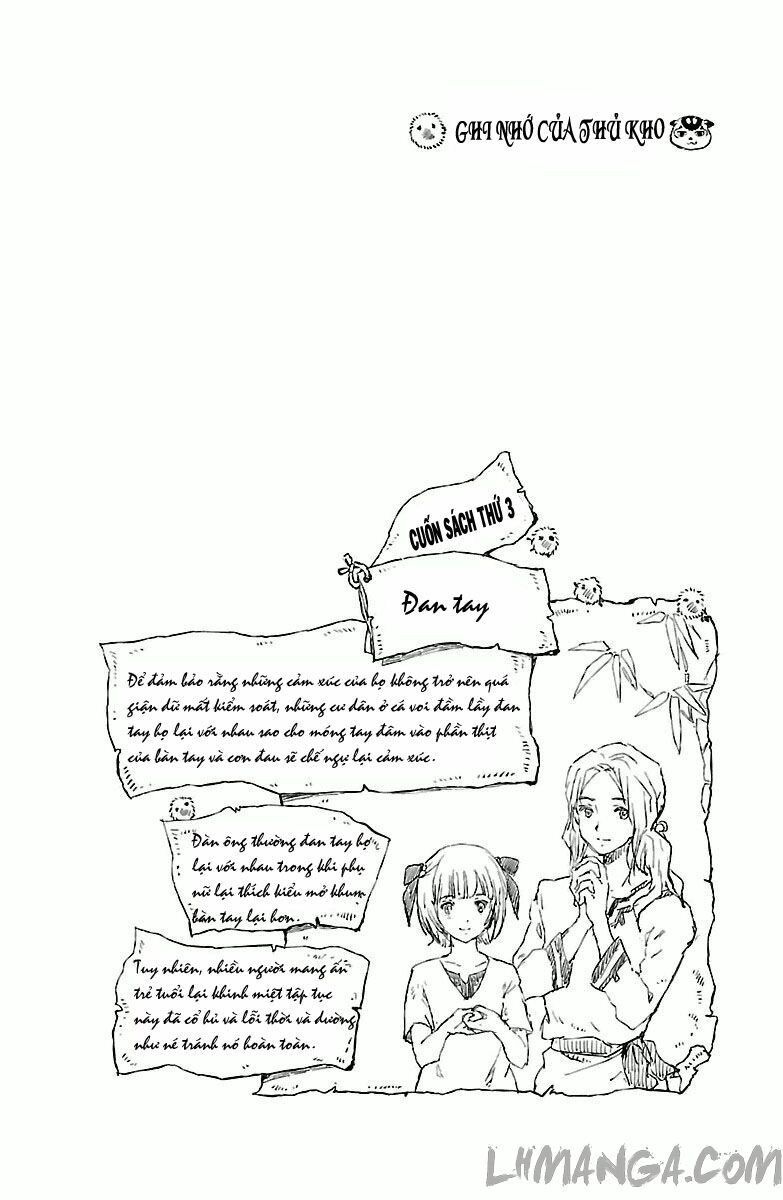 GHI NHỚ CỦA THỦ KHO
CUỐN SÁCH THỨ 3
Đan tay
Để đảm bảo rằng những cảm xúc của họ không trở nên quá
giận dữ mất kiểm soát, những cư dân ở cá voi đầm lầy đan
tay họ lại với nhau sao cho móng tay đâm vào phần thịt
của bàn tay và cơn đau sẽ chế ngự lại cảm xúc.
Đàn ông thường đan tay họ
lại với nhau trong khi phụ
nữ lại thích kiểu mở khum
bàn tay lại hơn.
Tuy nhiên, nhiều người mang ấn
trẻ tuổi lại khinh miệt tập tục
này đã cổ hủ và lỗi thời và dường
như né tránh nó hoàn toàn.
LHMANGA.COM